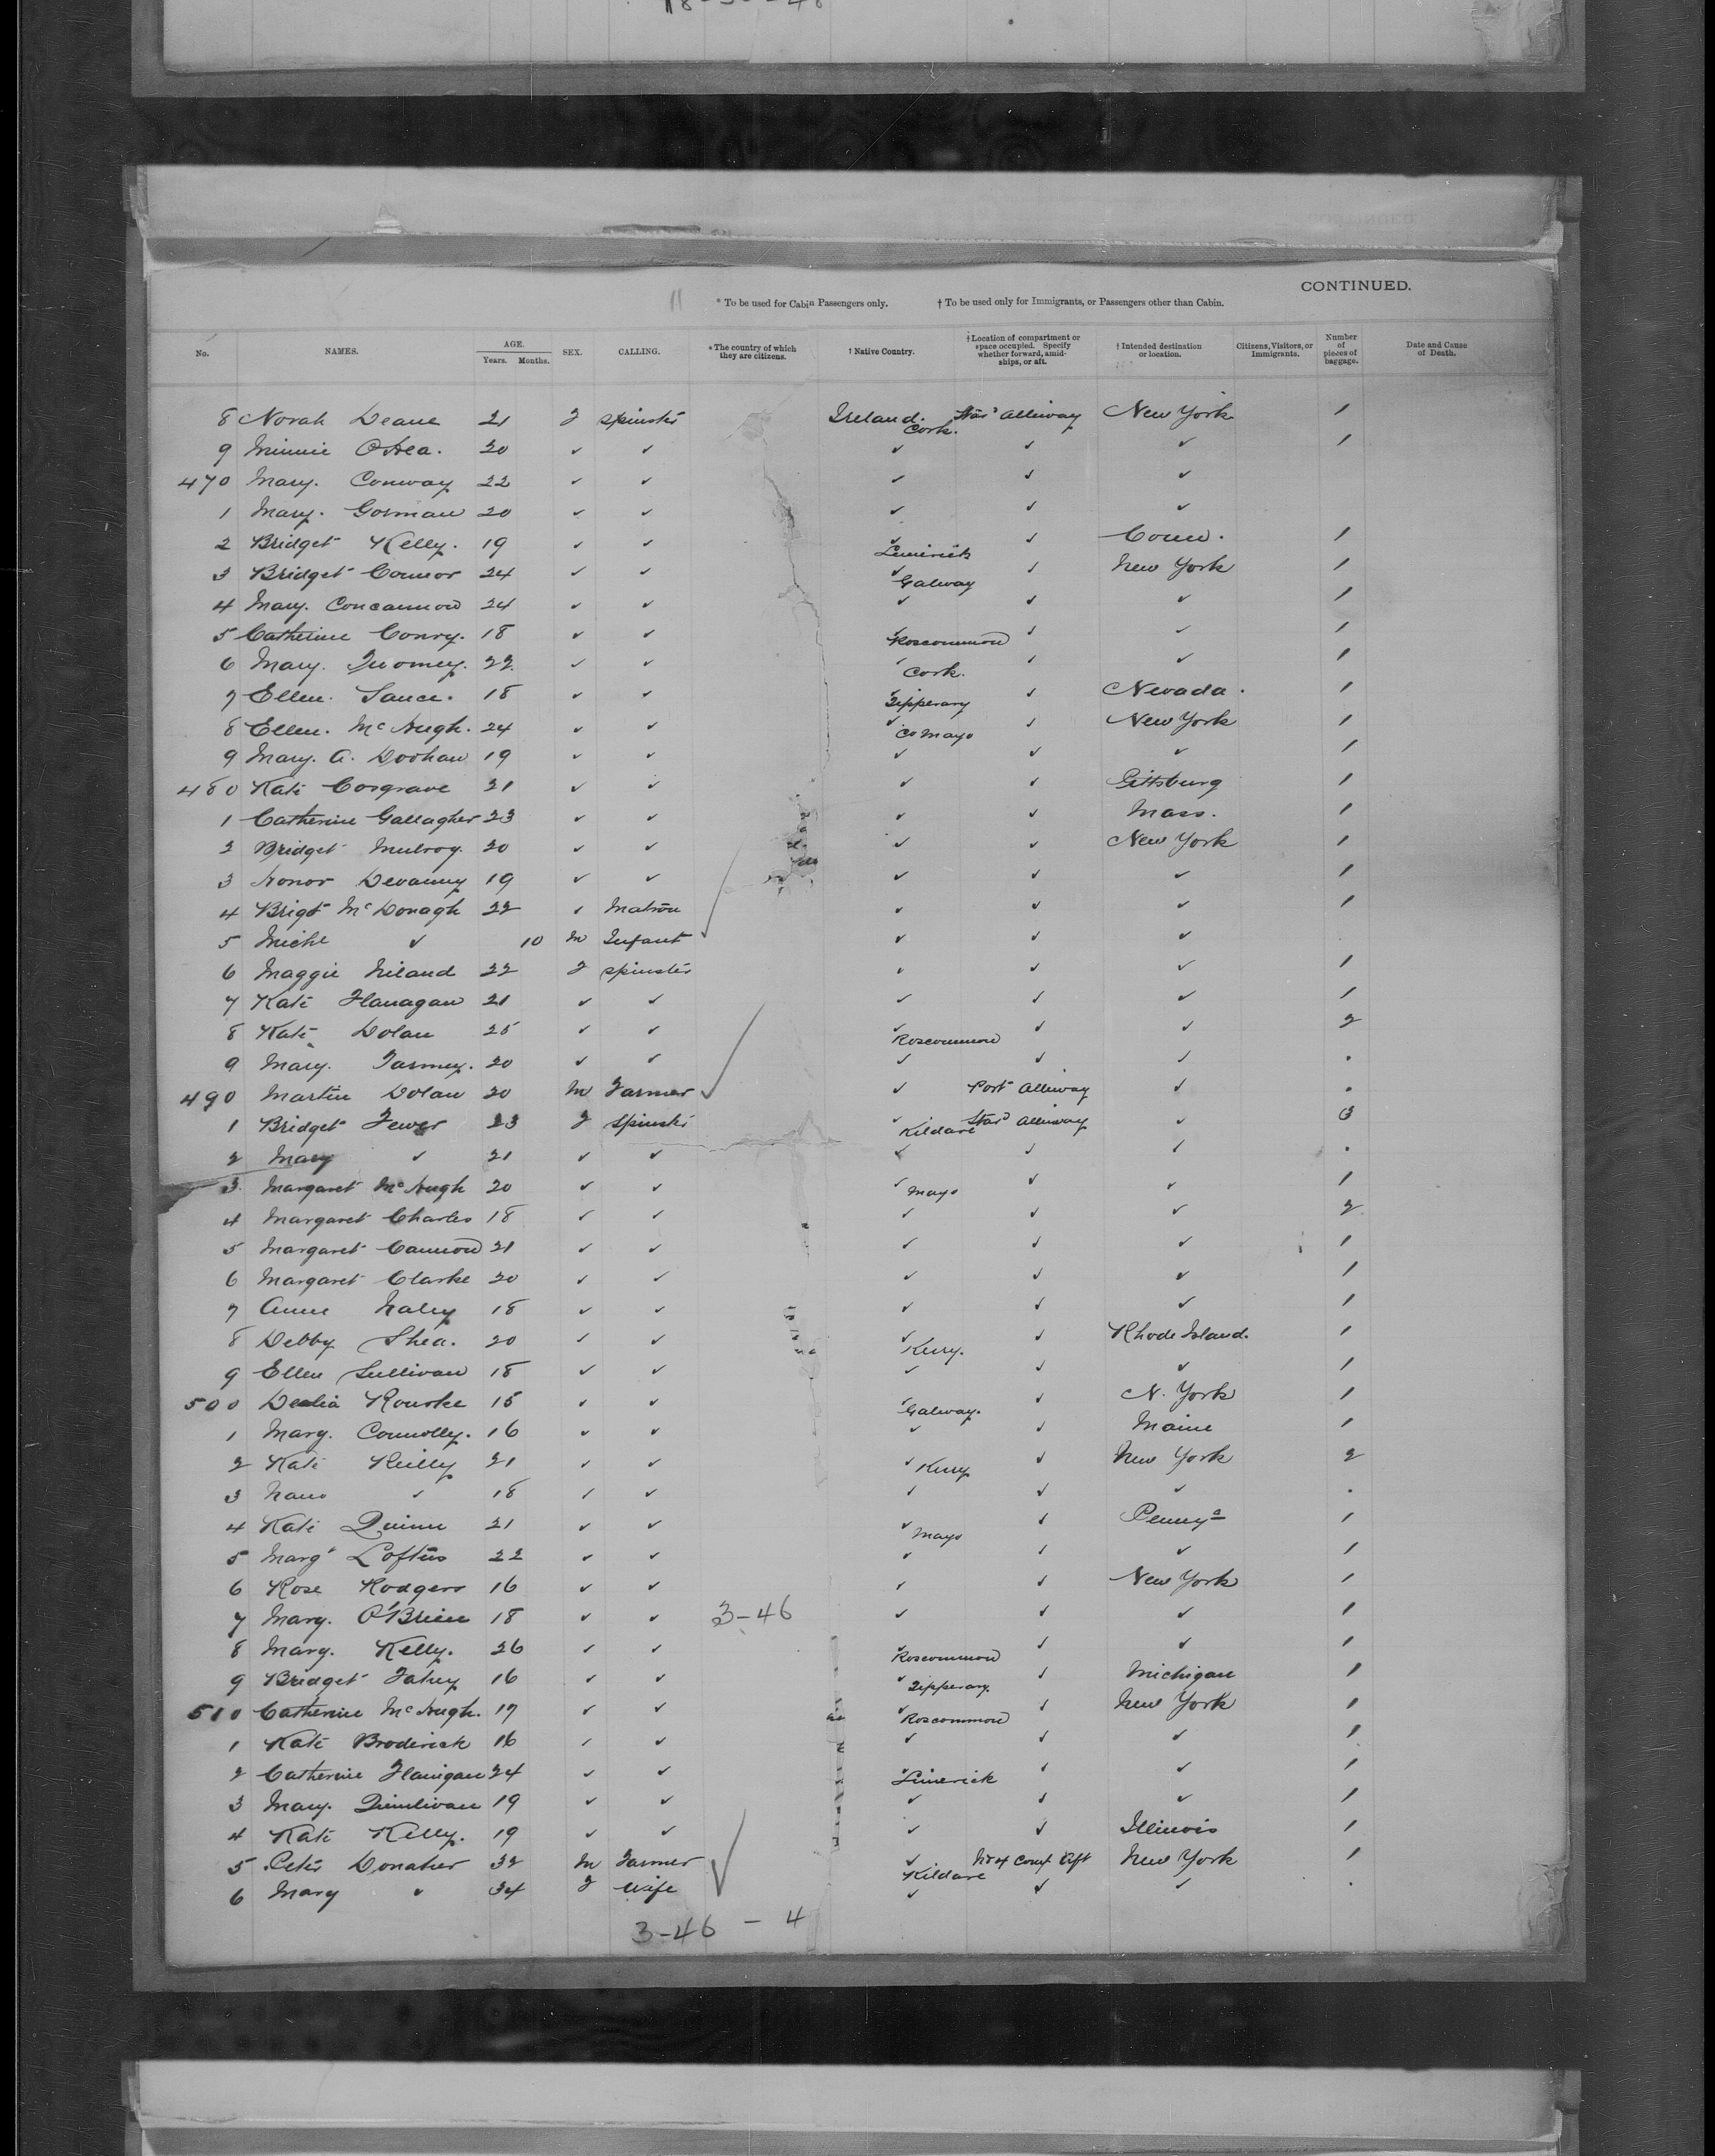 CONTINUED.
11 * To be used for Cabin Passengers only. † To be used only for Immigrants, or Passengers other than Cabin.
No. NAMES. AGE. Years. Months. SEX. CALLING. * The country of which they are citizens. † Native Country. † Location of compartment or space occupied. Specify whether forward, amidships, or aft. † Intended destination or location. Citizens, Visitors, or Immigrants. Number of pieces of baggage. Date and Cause of Death.
8 Norah Deane 21 F Spinster Ireland Cork. Star'd Alleway New York 1
9 Minnie O'Hea. 20 ✓ ✓ ✓ ✓ ✓ 1
470 Mary. Conway 22 ✓ ✓ ✓ ✓ ✓
1 Mary. Gorman 20 ✓ ✓ ✓ ✓ ✓
2 Bridget Kelly. 19 ✓ ✓ ✓ Limerick ✓ Conn. 1
3 Bridget Connor 24 ✓ ✓ ✓ Galway ✓ New York 1
4 Mary. Concannon 24 ✓ ✓ ✓ ✓ ✓ 1
5 Catherine Conry. 18 ✓ ✓ ✓ Roscommon ✓ ✓ 1
6 Mary. Twomey. 22 ✓ ✓ ✓ Cork. ✓ ✓ 1
7 Ellen. 18 ✓ ✓ ✓ Tipperary ✓ Nevada. 1
8 Ellen. McHugh. 24 ✓ ✓ ✓ Co Mayo ✓ New York 1
9 Mary. A. 19 ✓ ✓ ✓ ✓ ✓ 1
480 Kate Cosgrave 21 ✓ ✓ ✓ ✓ 1
1 Catherine Gallagher 23 ✓ ✓ ✓ ✓ Mass. 1
2 Bridget Mulroy. 20 ✓ ✓ ✓ ✓ New York 1
3 Honor Devanny 19 ✓ ✓ ✓ ✓ ✓ 1
4 Brigt McDonagh 22 ✓ Matron ✓ ✓ ✓ 1
5 Michl ✓ 10 M Infant ✓ ✓ ✓
6 Maggie Niland 22 F Spinster ✓ ✓ ✓ 1
7 Kate Flanagan 21 ✓ ✓ ✓ ✓ ✓ 1
8 Kate Dolan 25 ✓ ✓ ✓ Roscommon ✓ ✓ 2
9 Mary. Tarmey. 20 ✓ ✓ ✓ ✓ ✓ .
490 Martin Dolan 20 M Farmer ✓ Port Alleway ✓ .
1 Bridget Fewer 23 F Spinster ✓ Kildare Star'd Alleway ✓ 3
2 Mary ✓ 21 ✓ ✓ ✓ ✓ ✓ .
3 Margaret McHugh 20 ✓ ✓ ✓ Mayo ✓ ✓ 1
4 Margaret Charles 18 ✓ ✓ ✓ ✓ ✓ 2
5 Margaret Cannon 21 ✓ ✓ ✓ ✓ ✓ 1
6 Margaret Clarke 20 ✓ ✓ ✓ ✓ ✓ 1
7 Anne Haley 18 ✓ ✓ ✓ ✓ ✓ 1
8 Debby Shea. 20 ✓ ✓ ✓ Kerry. ✓ Rhode Island. 1
9 Ellen Sullivan 18 ✓ ✓ ✓ ✓ ✓ 1
500 Delia Rourke 15 ✓ ✓ ✓ Galway. ✓ N. York 1
1 Mary. Connolly. 16 ✓ ✓ ✓ ✓ Maine 1
2 Kate Reilly 21 ✓ ✓ ✓ Kerry ✓ New York 2
3 Nano ✓ 18 ✓ ✓ ✓ ✓ ✓ .
4 Kate Quinn 21 ✓ ✓ ✓ Mayo ✓ Penny a 1
5 Margt Loftus 22 ✓ ✓ ✓ ✓ ✓ 1
6 Rose Rodgers 16 ✓ ✓ ✓ ✓ New York 1
7 Mary. O'Brien 18 ✓ ✓ 3-46 ✓ ✓ ✓ 1
8 Mary. Kelly. 26 ✓ ✓ ✓ Roscommon ✓ ✓ 1
9 Bridget Fahey 16 ✓ ✓ ✓ Tipperary. ✓ Michigan 1
510 Catherine McHugh. 17 ✓ ✓ ✓ Roscommon ✓ New York 1
1 Kate Broderick 16 ✓ ✓ ✓ ✓ ✓ 1
2 Catherine Flanigan 24 ✓ ✓ ✓ Limerick ✓ ✓ 1
3 Mary. Quinlivan 19 ✓ ✓ ✓ ✓ ✓ 1
4 Kate Kelly. 19 ✓ ✓ ✓ ✓ Illinois 1
5 Peter Donaher 32 M Farmer ✓ Kildare No 4 Compt Aft New York 1
6 Mary ✓ 34 F Wife ✓ ✓ ✓ .
3-46 - 4